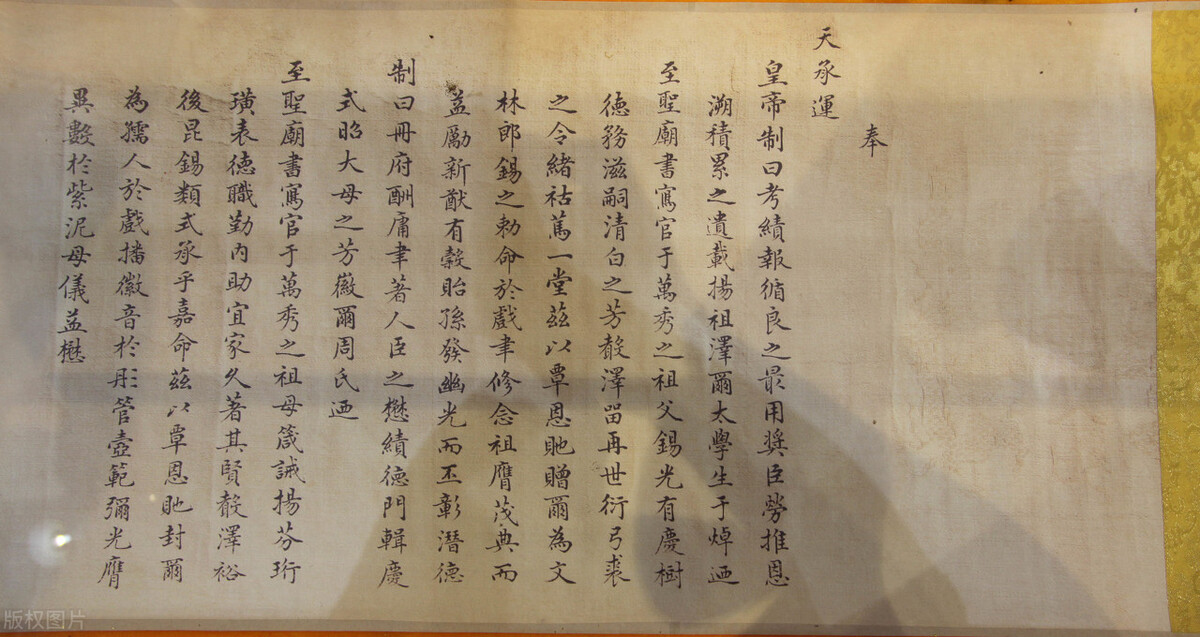 奉
天承運
皇帝制曰考績報循良之最用獎臣勞推恩
溯積累之遺載揚祖澤爾太學生于焯迺
至聖廟書寫官于萬秀之祖父錫光有慶樹
德務滋嗣清白之芳聲澤留再世衍弓裘
之令緒祜篤一堂茲以覃恩貤贈爾為文
林郎錫之勅命於戲聿修念祖膺茂典而
益勵新猷有穀貽孫發幽光而丕彰潛德
制曰冊府酬庸聿著人臣之懋績德門輯慶
式昭大母之芳徽爾周氏迺
至聖廟書寫官于萬秀之祖母箴誡揚芬珩
璜表德職勤內助宜家久著其賢聲澤裕
後昆錫類式承乎嘉命茲以覃恩貤封爾
為孺人於戲播徽音於彤管壼範彌光膺
異數於紫泥母儀益懋
版权图片